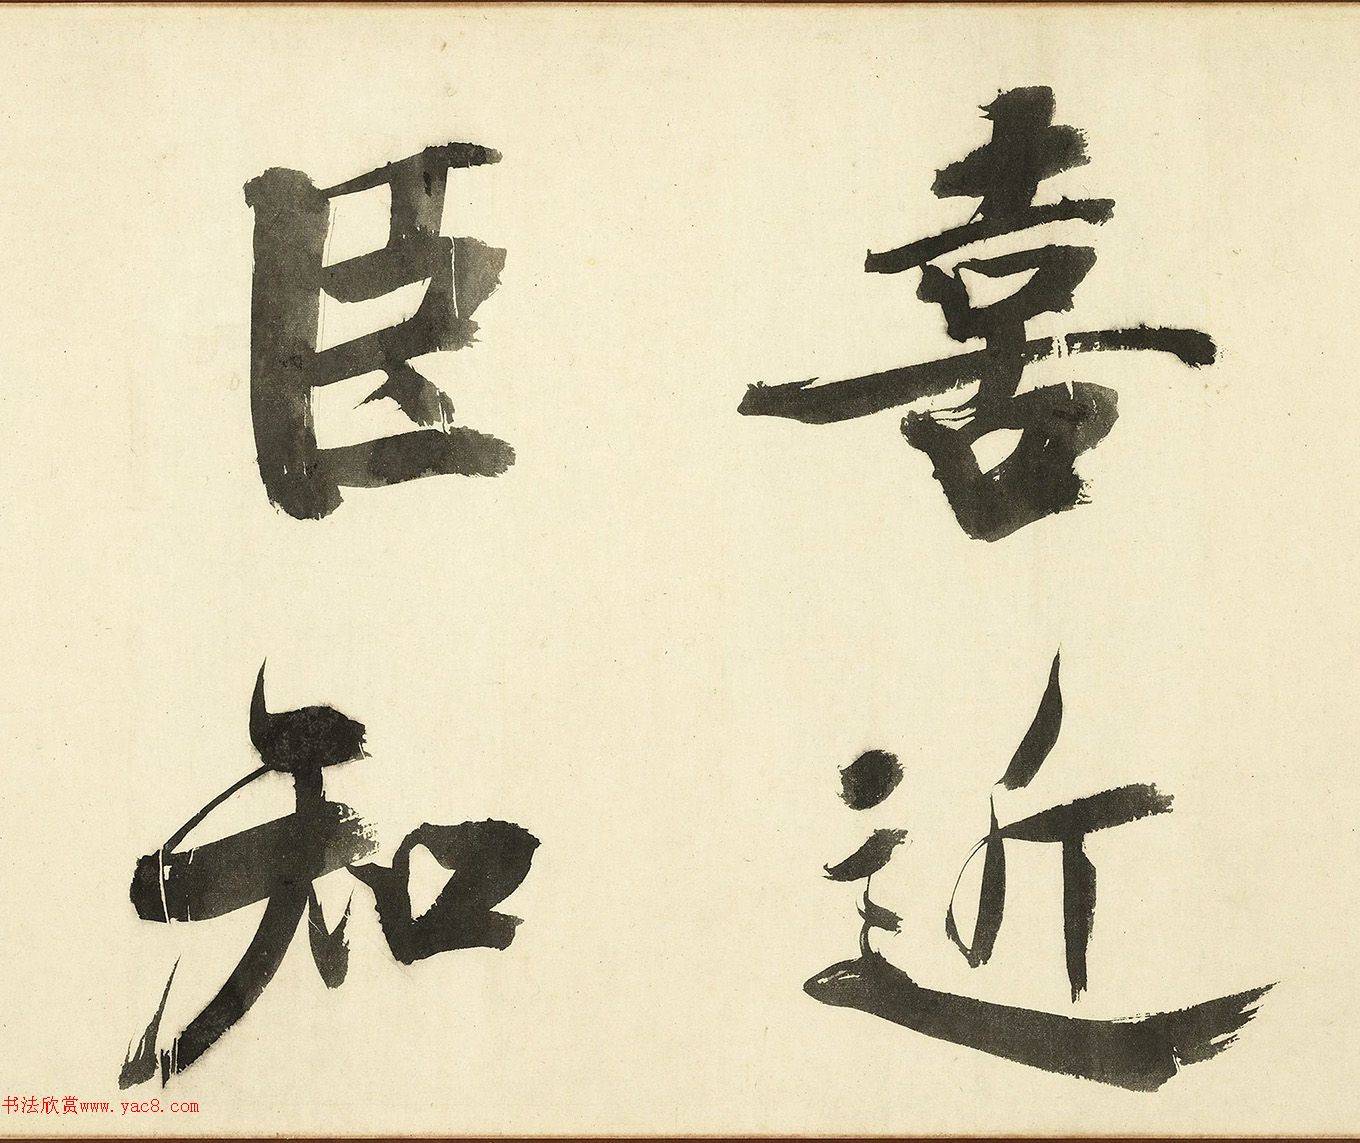 喜近
臣知
书法欣赏www.yac8.com